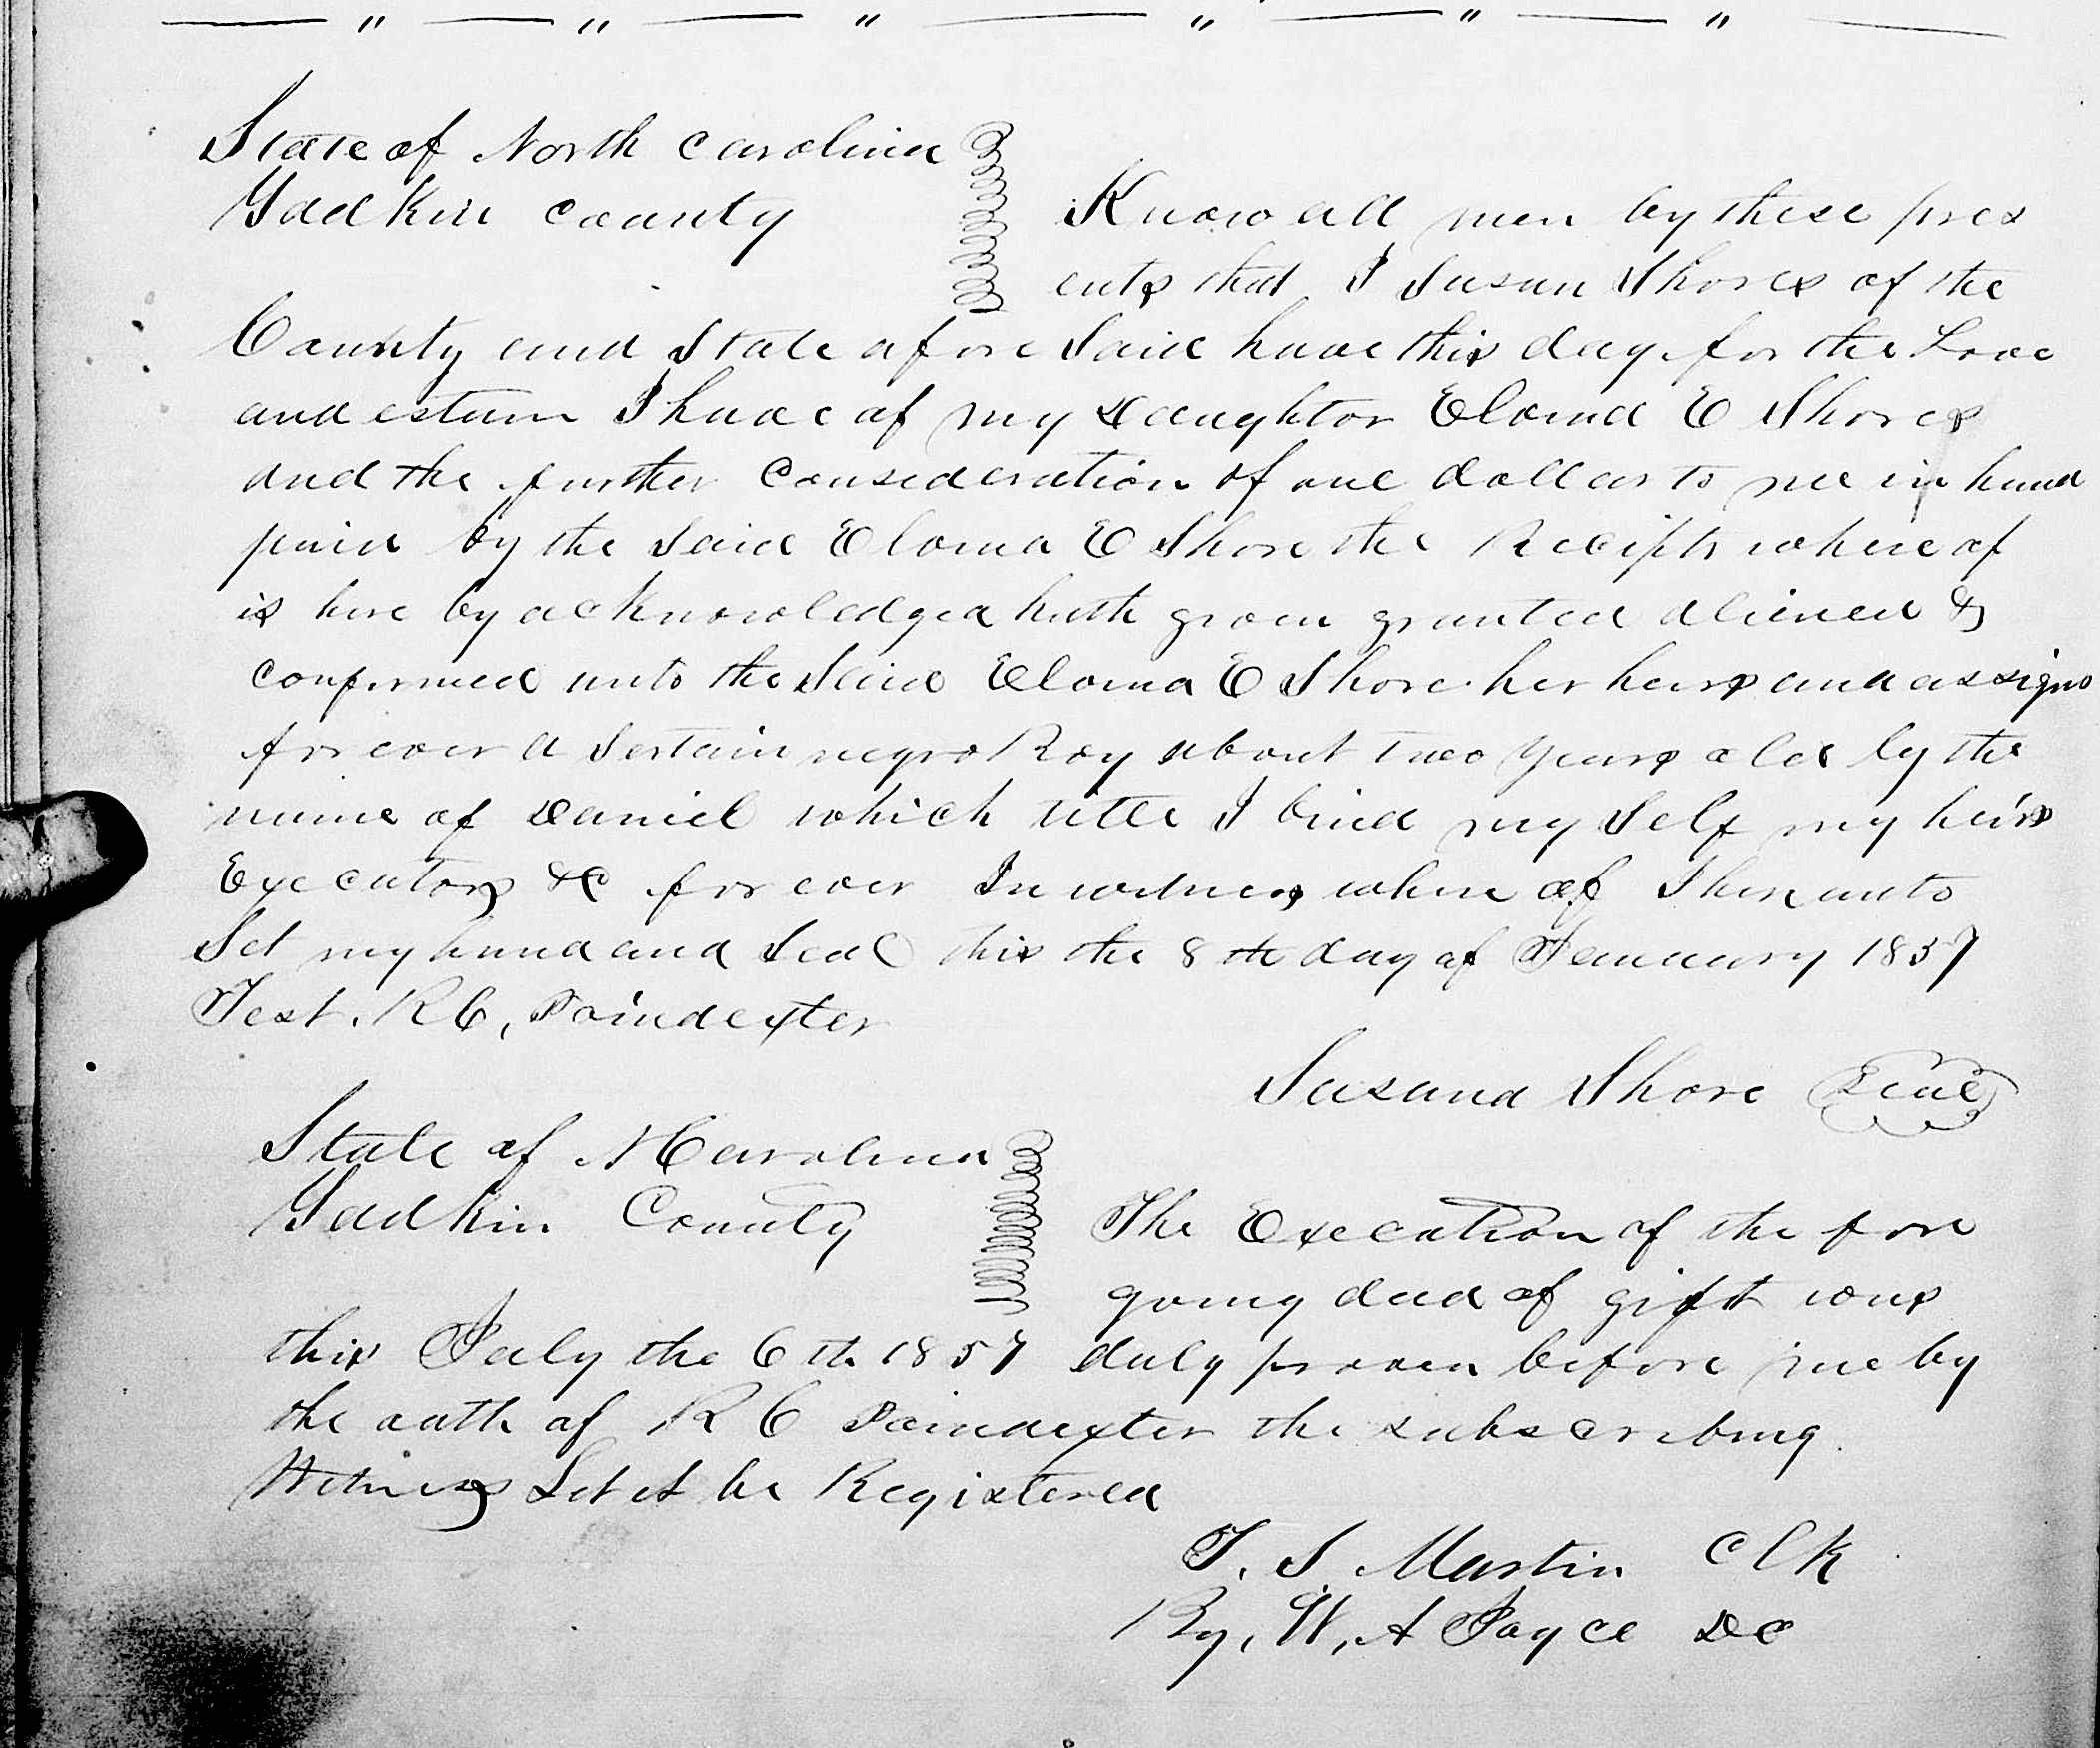 State of North Carolina
Yadkin County Know all men by these pres
ents that I Susan Shores of the
County and State afore Said have this day for the Love
and esteem I have of my Daughter Eloma E Shores
and the further Consideration of one dollar to me in hand
paid by the Said Eloma E Shore the Recipts where of
is here by acknowledged hath given granted aliened &
confirmed unto the Said Eloma E Shore her heirs and assigns
for ever a Sertain negro Boy about two years old by the
name of Daniel which title I bind my Self my heirs
Executors &C for ever In witness where of I here unto
Set my hand and Seal this the 8th day of January 1857
Test. R C, Poindexter
Susana Shore Seal
State of N Carolina
Yadkin County The Execution of the fore
going deed of gift was
this July the 6th 1857 duly proven before me by
the oath of R C Poindexter the subscribing
Witness Let it be Registered
T. S. Martin Clk
By, W, A Joyce DC